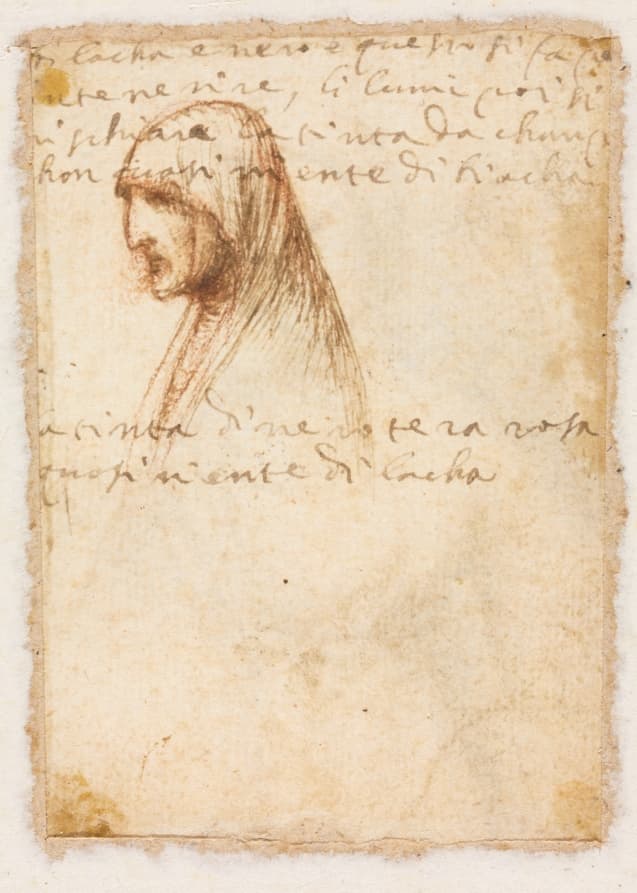 di lacha e nero e questo si fa pe
ntenerire, li lumi poi si
rischiara la tinta da
non quasi niente di biacha
a tinta di nero tera rosa
quasi niente di lacha